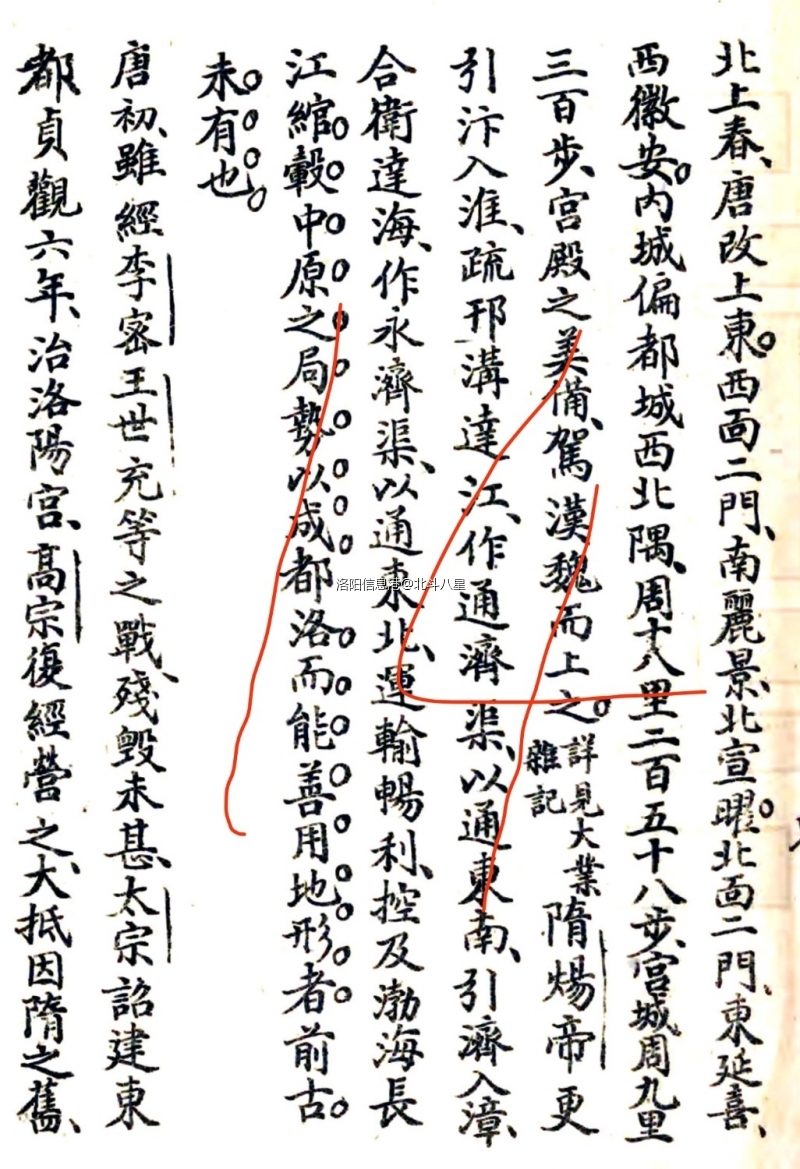 北上春、唐改上東。西面二門、南麗景、北宣曜。北面二門、東延喜、
西徽安。内城偏都城西北隅、周十八里二百五十八步、宮城周九里
三百步、宮殿之美備、駕漢魏而上之。詳見大業雜記隋煬帝更
引汴入淮、疏邗溝達江、作通濟渠、以通東南、引濟入漳、
合衛達海、作永濟渠、以通東北、運輸暢利、控及渤海長
江綰轂中原之局勢以成都洛而能善用地形者前古
未有也。
唐初、雖經李密王世充等之戰、殘毀未甚、太宗詔建東
都貞觀六年、治洛陽宮、高宗復經營之、大抵因隋之舊、
洛阳信息港@北斗八星